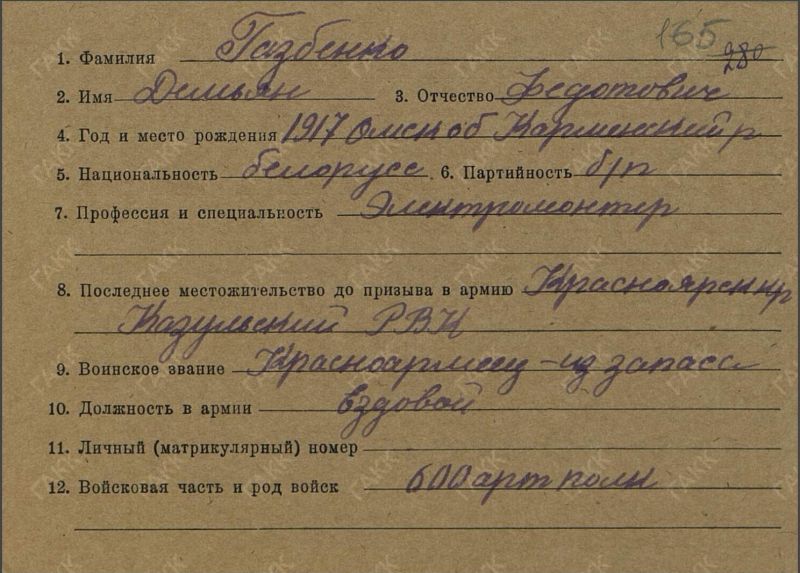 165 280
1. Фамилия Газбенко
2. Имя Демьян 3. Отчество Федотович
4. Год и место рождения 1917 Омск об Карменский р
5. Национальность белорусс. 6. Партийность б/п
7. Профессия и специальность Электромонтер
8. Последнее местожительство до призыва в армию Красноярск кр
Казульский РВК
9. Воинское звание Красноармеец - из запаса
10. Должность в армии Ездовой
11. Личный (матрикулярный) номер
12. Войсковая часть и род войск 600 арт полк